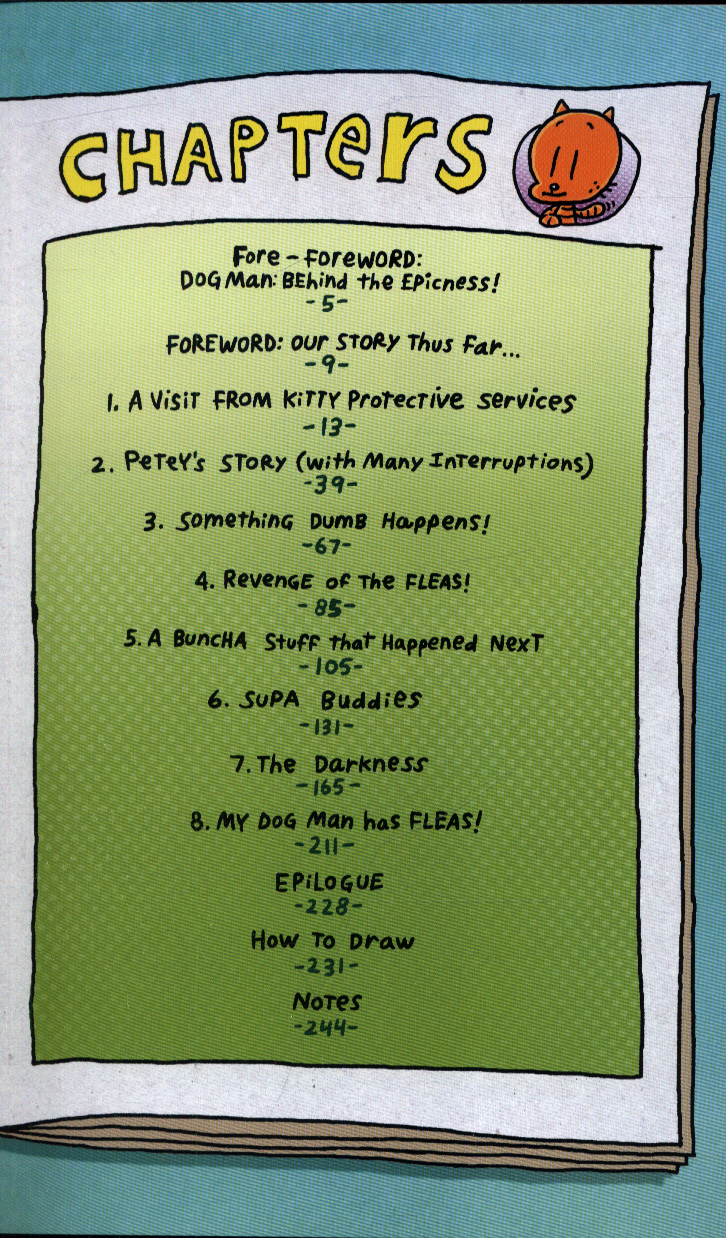 CHAPTers
Fore-ForeWORD:
DOG Man: BEhind the EPicness!
-5-
FOREWORD: OUr STORY Thus Far...
-9-
1. A VisiT FROM KiTTY ProTecTive services
-13-
2. PeTeY's STORY (with Many InTerruptions)
-39-
3. SomeThinG DumB Happens!
-67-
4. RevenGE of The FLEAS!
-85-
5. A BuncHA Stuff that Happened NexT
-105-
6. SuPA Buddies
-131-
7. The Darkness
-165-
8. MY DoG Man has FLEAS!
-211-
EPiLOGUE
-228-
How To Draw
-231-
NoTes
-244-